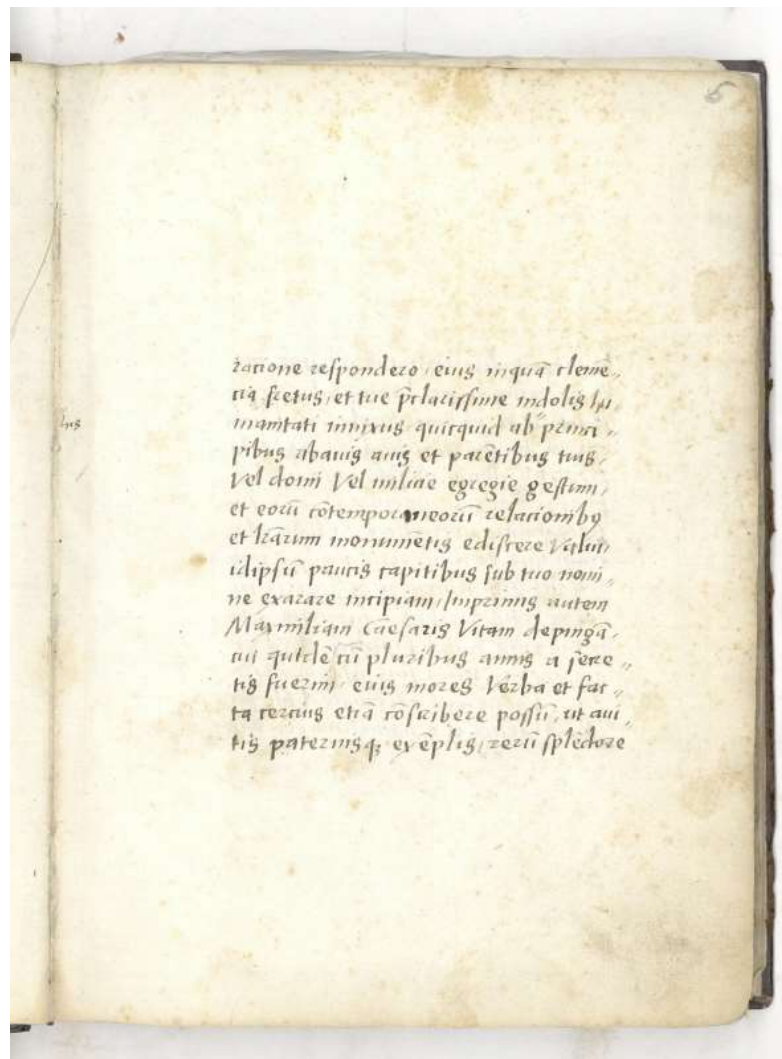 6
racione respondero, eius inquā clemē„
cia fretus, et tue p̄clarissime indolis hu„
manitati innixus quicquid ab princi„
pibus abavis avis et parētibus tuis,
Vel domi Vel milicie egregie gestum,
et eorū cōtemporaneorū relacionibꝰ
et lr̄arum monumētis ediscere Valui,
idipsū paucis capitibus sub tuo nomi„
ne exarare incipiam, Imprimis autem
Maxmiliani Caesaris Vitam depingā,
cui quidē cū pluribus annis a secre„
tis fuerim, eius mores Verba et fac„
ta cercius etiā cōscribere possū, ut avi„
tis paternisqꝫ exēplis, rerū splēdore